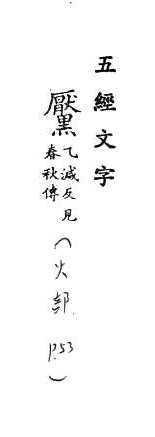 五經文字
黶乙減反見
春秋傳
(火部 p.53)